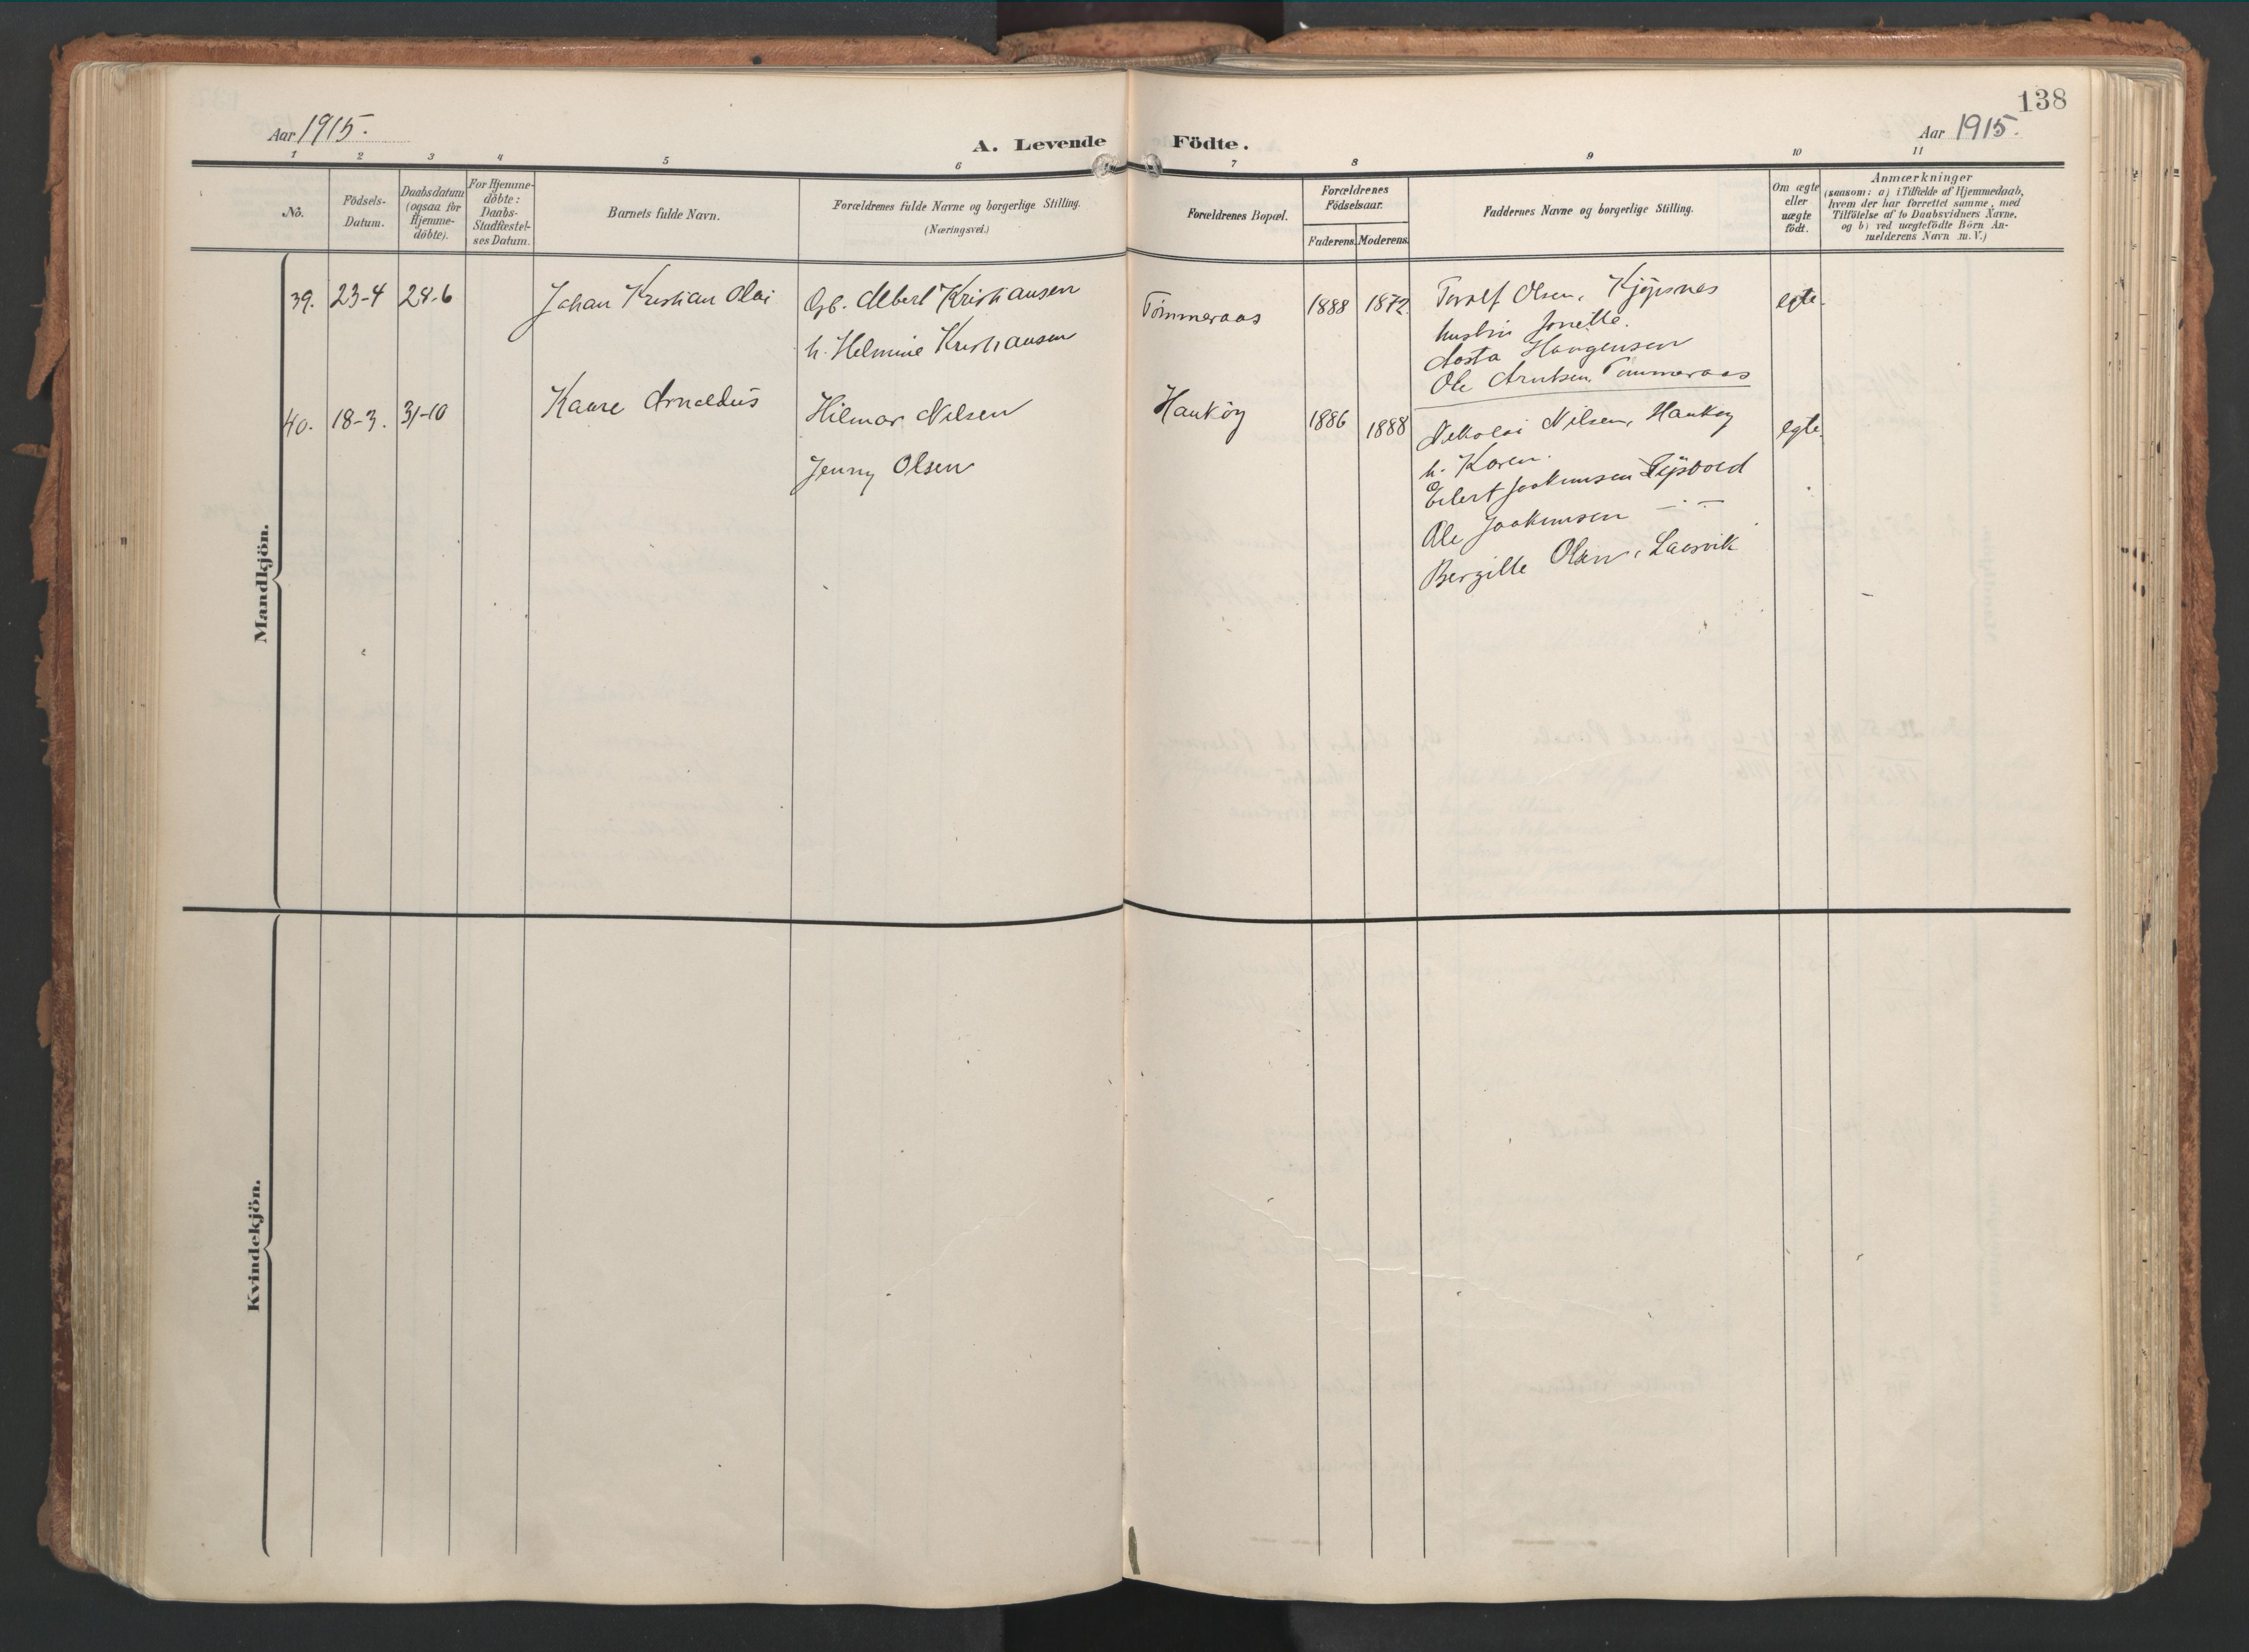 138
Aar 1915.
A. Levende Födte.
Aar 1915.
1 2 3 4 5 6 7 8 9 10 11
No.
Födsels-
Datum.
Daabsdatum
(ogsaa for
Hjemme-
döbte).
For Hjemme-
döbte:
Daabs-
Stadfæstel-
ses Datum.
Barnets fulde Navn.
Forældrenes fulde Navne og borgerlige Stilling.
(Næringsvei.)
Forældrenes Bopæl.
Forældrenes
Födselsaar.
Faderens. Moderens.
Faddernes Navne og borgerlige Stilling.
Om ægte
eller
uægte
födt.
Anmærkninger
(saasom: a) i Tilfælde af Hjemmedaab,
hvem der har forrettet samme, med
Tilföielse af to Daabsvidners Navne,
og b) ved uægtefödte Börn An-
melderens Navn m. V.)
Mandkjön.
39. 23-4 28-6 Johan Kristian Olai
Gb. Albert Kristiansen
h. Helmine Kristiansen
Tömmeraas 1888 1872.
Torolf Olsen, Kjöpsnes
hustru Jonette.
Aasta Haugensen
Ole Arntsen, Tömmeraas
egte.
40. 18-3. 31-10 Kaare Arnoldus
Hilmar Nilsen
Jenny Olsen
Hauköy 1886 1888
Nikolai Nilsen, Hauköy
h. Karen.
Eilert Joakimsen
Ole Joakimsen — " —
Bergitte Olsen, Laksvik
egte.
Kvindekjön.